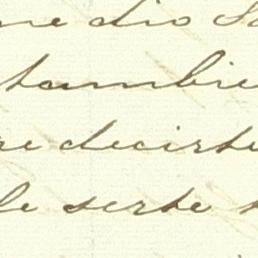 me dio
tambie
re decirte
le serte